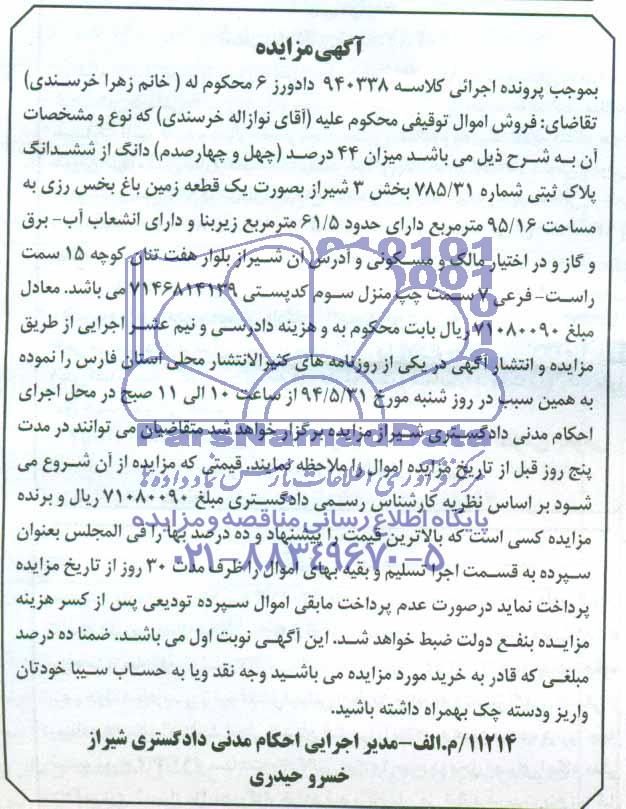 آگهی مزایده
بموجب پرونده اجرائی کلاسه ۹۴۰۳۳۸ دادورز ۶ محکوم له ( خانم زهرا خرسندی)
تقاضای: فروش اموال توقیفی محکوم علیه (آقای نوازاله خرسندی) که نوع و مشخصات
آن به شرح ذیل می باشد میزان ۴۴ درصد (چهل و چهارصدم) دانگ از ششدانگ
پلاک ثبتی شماره ۷۸۵/۳۱ بخش ۳ شیراز بصورت یک قطعه زمین باغ بخس رزی به
مساحت ۹۵/۱۶ مترمربع دارای حدود ۶۱/۵ مترمربع زیربنا و دارای انشعاب آب- برق
و گاز و در اختیار مالک و مسکونی و آدرس آن شیراز بلوار هفت تنان کوچه ۱۵ سمت
راست- فرعی ۷ سمت چپ منزل سوم کدپستی ۷۱۴۶۸۱۴۱۳۹ می باشد. معادل
مبلغ ۷۱۰۸۰۰۹۰ ریال بابت محکوم به و هزینه دادرسی و نیم عشر اجرایی از طریق
مزایده و انتشار آگهی در یکی از روزنامه های کثیرالانتشار محلی استان فارس را نموده
به همین سبب در روز شنبه مورخ ۹۴/۵/۳۱ از ساعت ۱۰ الی ۱۱ صبح در محل اجرای
احکام مدنی دادگستری شیراز مزایده برگزار خواهد شد متقاضیان می توانند در مدت
ParsNamadData
پنج روز قبل از تاریخ مزایده اموال را ملاحظه نمایند. قیمتی که مزایده از آن شروع می
مرکز فرآوری اطلاعات پارس نماد داده ها
شود بر اساس نظریه کارشناس رسمی دادگستری مبلغ ۷۱۰۸۰۰۹۰ ریال و برنده
پایگاه اطلاع رسانی مناقصه و مزایده
مزایده کسی است که بالاترین قیمت را پیشنهاد و ده درصد بها را فی المجلس بعنوان
۰۲۱-۸۸۳۴۹۶۷۰-۵
سپرده به قسمت اجرا تسلیم و بقیه بهای اموال را ظرف مدت ۳۰ روز از تاریخ مزایده
پرداخت نماید درصورت عدم پرداخت مابقی اموال سپرده تودیعی پس از کسر هزینه
مزایده بنفع دولت ضبط خواهد شد. این آگهی نوبت اول می باشد. ضمنا ده درصد
مبلغی که قادر به خرید مورد مزایده می باشید وجه نقد ویا به حساب سیبا خودتان
واریز ودسته چک بهمراه داشته باشید.
۱۱۲۱۴/م.الف-مدیر اجرایی احکام مدنی دادگستری شیراز
خسرو حیدری